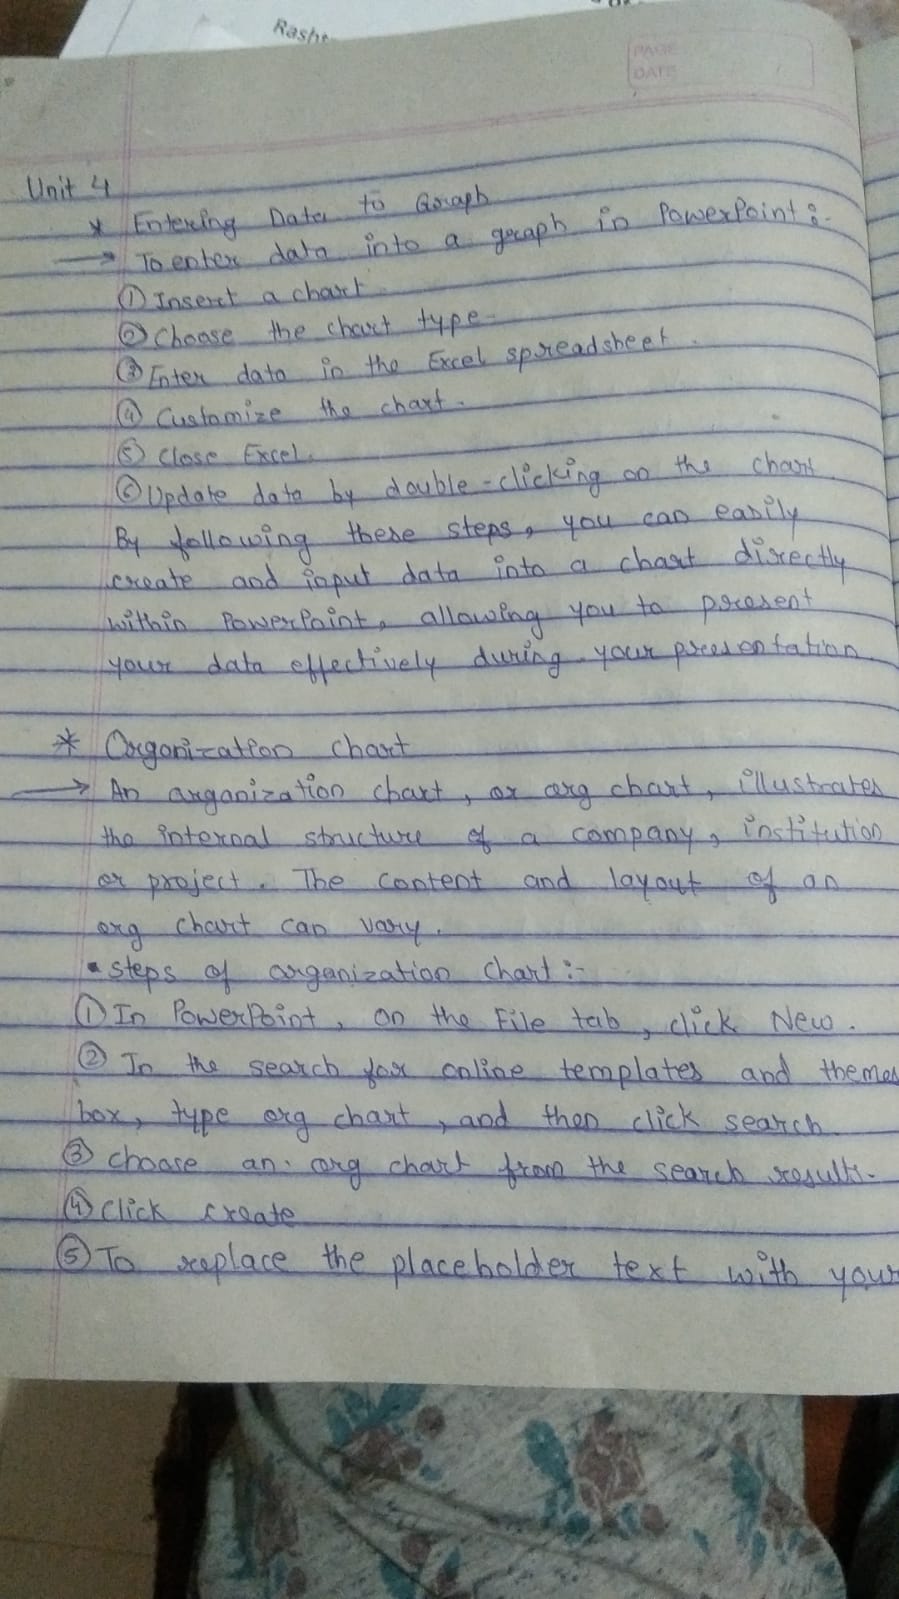 Rashe
PAGE
DATE
Unit 4
* Entering Data to Graph
→ To enter data into a graph in PowerPoint :-
① Insert a chart
② Choose the chart type
③ Enter data in the Excel spreadsheet.
④ Customize the chart.
⑤ Close Excel.
⑥ Update data by double-clicking on the chart
By following these steps, you can easily
create and input data into a chart directly
within PowerPoint, allowing you to present
your data effectively during your presentation
* Organization chart
→ An organization chart, or org chart, illustrates
the internal structure of a company, institution
or project. The content and layout of an
org chart can vary.
• steps of organization chart :-
① In PowerPoint, on the File tab, click New.
② In the search for online templates and themes
box, type org chart, and then click search
③ choose an org chart from the search results.
④ Click create
⑤ To replace the placeholder text with your